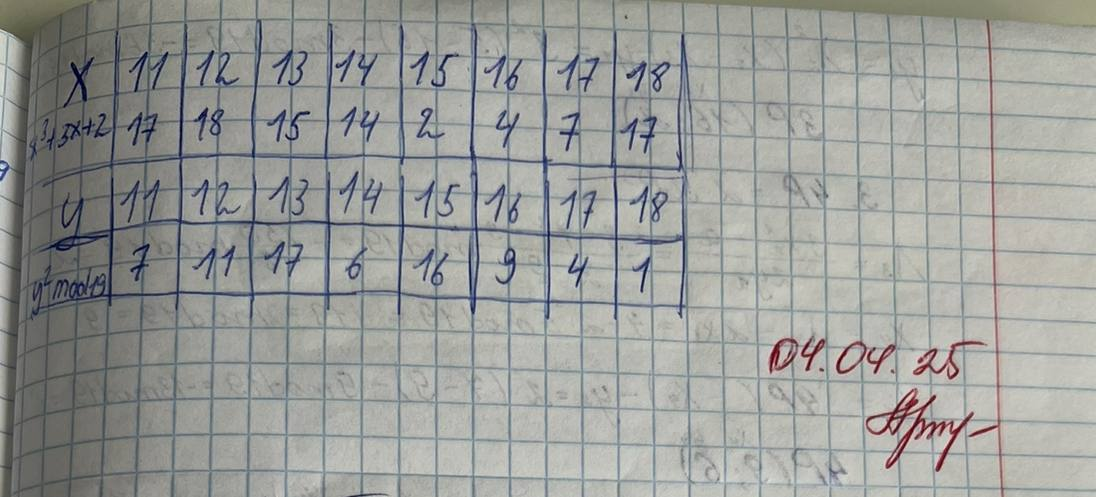 X 11 12 13 14 15 16 17 18
x³+3x+2 17 18 15 14 2 4 7 17
y 11 12 13 14 15 16 17 18
y² mod 19 7 11 17 6 16 9 4 1
04.04.25